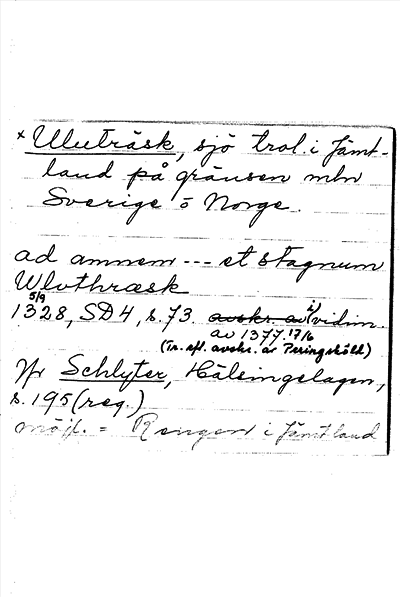 × Uluträsk, sjö trol. i Jämt-
land på gränsen mln
Sverige o Norge.
ad amnem --- et stagnum
Wluthræsk
5/9
1328, SD4, s. 73. avskr. av i vidim.
av 1377 17/6
(Tr. efl. avskr. av Peringskiöld)
Jfr Schlyter, Hälsingelagen,
s. 195 (reg.)
möjl. = Rengen i Jämtland